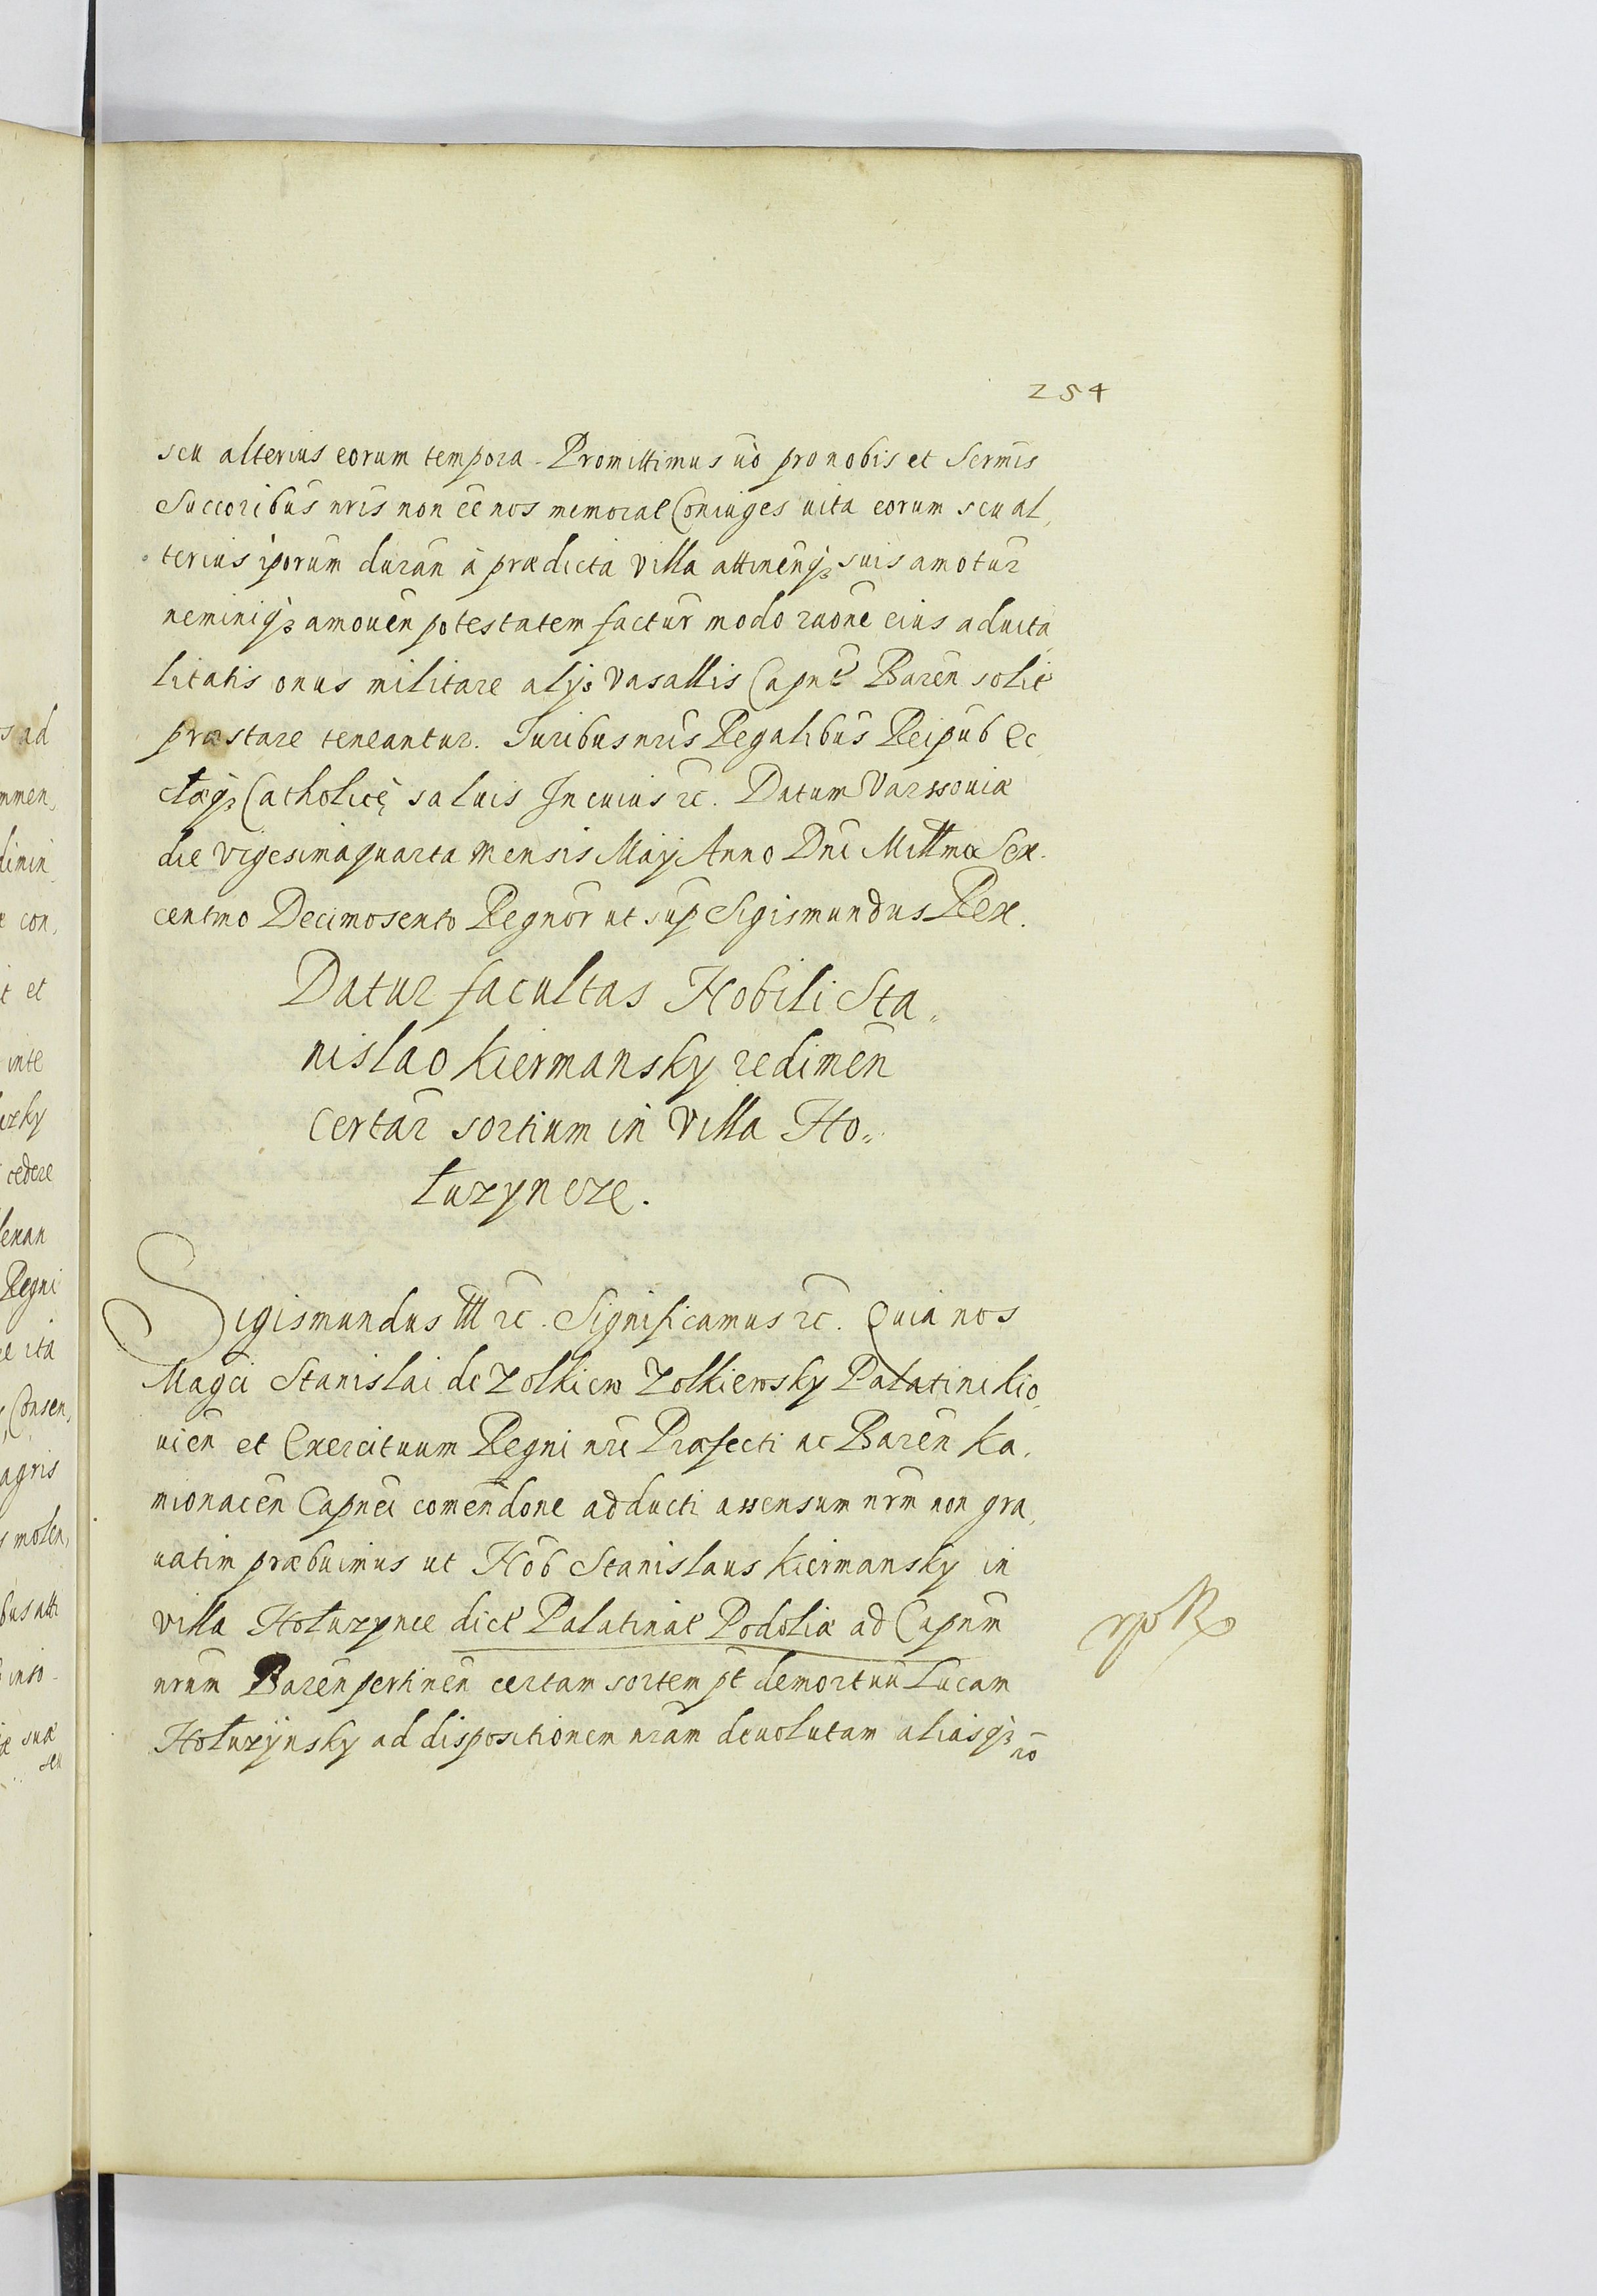 254
seu alterius eorum tempora. Promittimus uò pro nobis et Sermis
Succoribus nris non ee nos memorat Coniuges uita eorum seu al,
terius iporum duran à prædicta Villa attinenqꝫ suis amotur
neminiqꝫ amouen potestatem factur modo raone eius aduita
litatis onus militare alys Vasallis Capnt Baren solit
præstare teneantur. Iuribus nris Regalibus Reipub Ec
clæqꝫ Catholicę saluis In cuius rc. Datum Varssouiæ
die vigesima quarta mensis Maÿ Anno Dni Millmo Sex.
centmo Decimosexto Regnor ut sup Sigismundus Rex.
Datur facultas Nobili Sta„
nislao Kiermansky redimen
Certar sortium in Villa Ho„
łuzyncze.
Sigismundus III rc. Significamus rc. Quia nos
Magci Stanislai de Zolkiew Zolkiewsky Palatini Kio,
uien et Exercituum Regni nri Præfecti ac Baren Ka,
mionacen Capnei comendone adducti assensum nrm non gra,
uatim præbuimus ut Nob Stanislaus Kiermansky in
villa Hołuzynce dict Palatinat Podoliæ ad Capnm
nrum Baren pertinen certam sortem pt demortuu Lucam
Hołuzÿnsky ad dispositionem nram deuolutam aliasqꝫ
ro
ad
mmen,
dimin
con,
t et
inte
cedere
Regni
ita
Consen,
agris
molen,
bus atti
suæ
seu